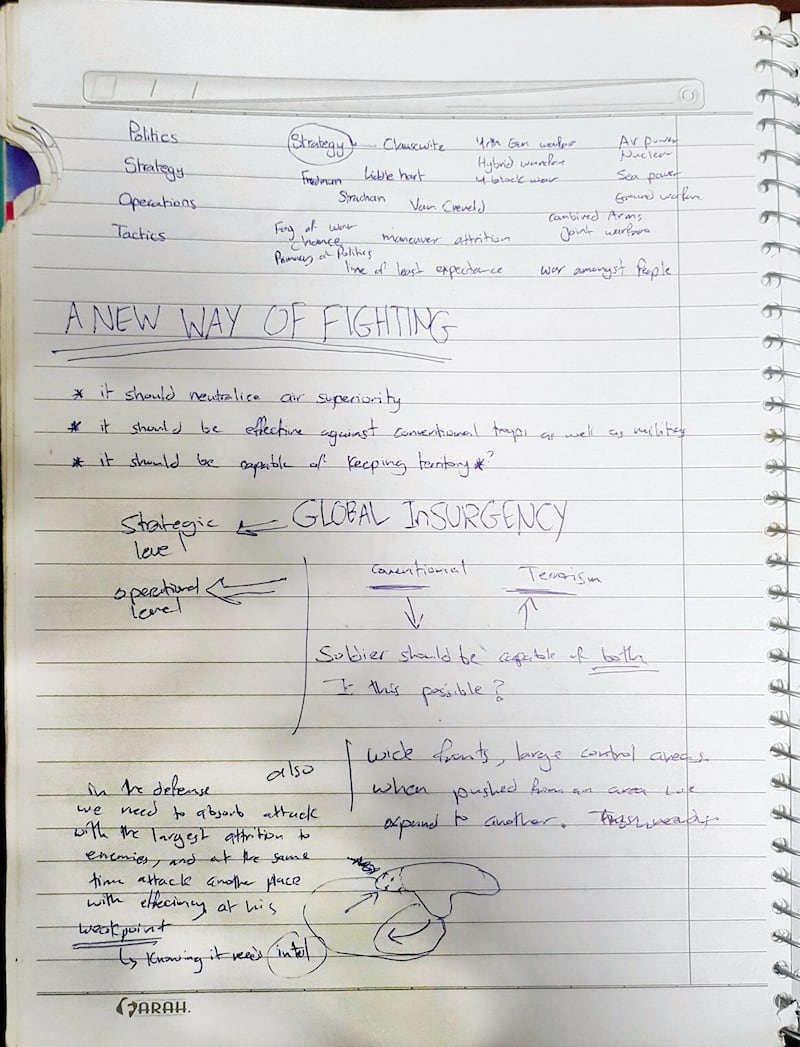 Politics
Strategy
Operations
Tactics
Strategy Clausewitz 4th Gen warfare Air power
Hybrid warfare Nuclear
Freedman Liddle hart 4 block war Sea power
Strachan Van Creveld Ground warfare
Combined Arms
Fog of war
Chance maneuver attrition Joint warfare
Primacy of Politics
line of least expectance war amongst People
A NEW WAY OF FIGHTING
* it should neutralice air superiority
* it should be effective against conventional troops as well as militias
* it should be capable of keeping territory *?
Strategic level GLOBAL INSURGENCY
operational level
Conventional Terrorism
Soldier should be capable of both
Is this possible?
also
wide fronts, large control areas.
when pushed from an area we
expand to another.
in the defense
we need to absorb attack
with the largest attrition to
enemies, and at the same
time attack another place
with efficiency at his
weakpoint
Knowing it needs intel
FARAH.